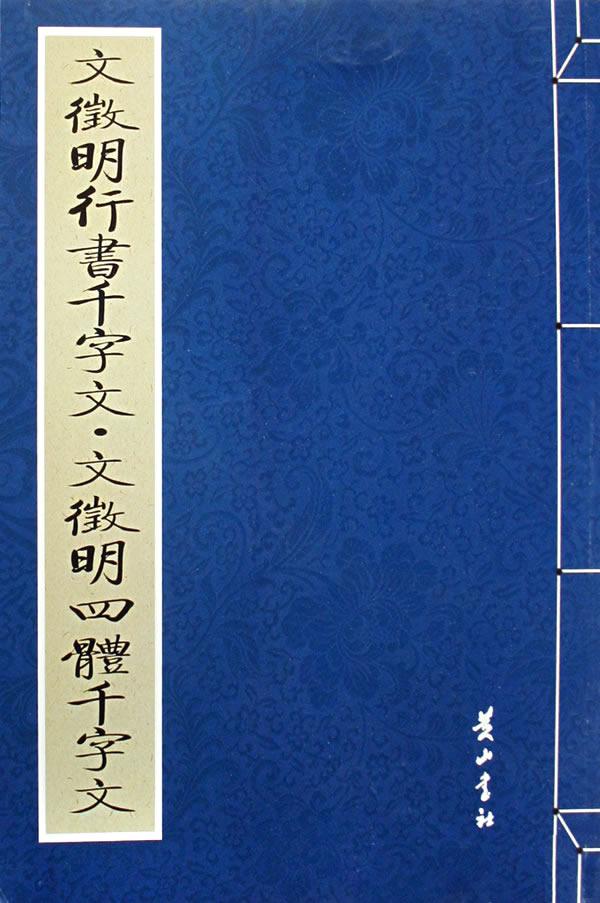 文徵明行書千字文·文徵明四體千字文
黄山书社